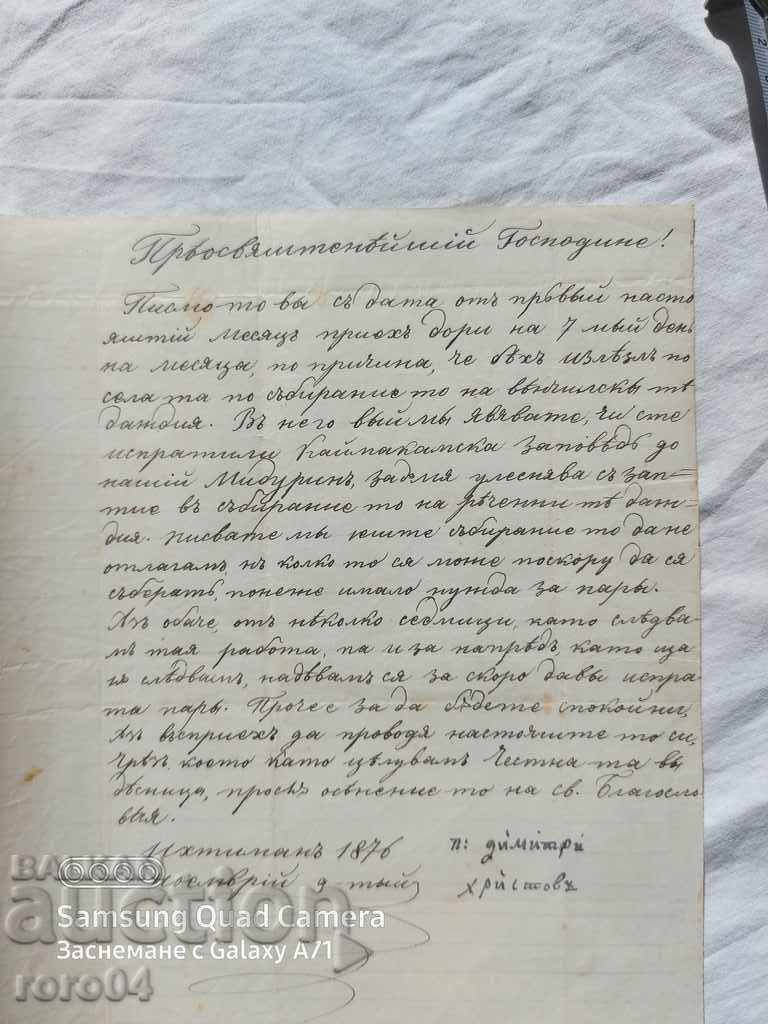 Прѣосвяштенѣйшій Господине!
Писмо-то вы съ дата отъ првый насто
яштій месяцъ приехъ дори на 7 мый день
на месяца, по причина, че бѣхъ излѣзлъ по
села та по събирание то на вѣнчилскы тѣ
даждия. Въ него вый мы явявате, чи сте
испратили Каймакамска заповѣдь до
нашій Мидуринъ, за да улеснява съ зап=
тие въ събирание то на рѣченни тѣ даж=
дия. писвате мы юште събирание то да не
отлагамъ, нъ колко то ся може поскору да ся
съберать, понеже имало нужда за пары.
Азъ обаче, отъ нѣколко седмици, като слѣдва
мъ тая работа, па и за напрѣдъ, като ща
ія слѣдвамъ, надѣвамъ ся за скоро да вы испра
та пары. Прочее за да бѫдете спокойни,
Азъ въсприехъ да проводя настояште то си,
чрѣзъ което като цѣлувамъ Честна та вы
дѣсница, просѭ осѣнение то на св. Благосло
вѣя.
Ихтиманъ 1876 п: димитри
ноемврій 9-тый христовъ
БАЛКАН
auction
Samsung Quad Camera
Заснемане с Galaxy A71
roro04